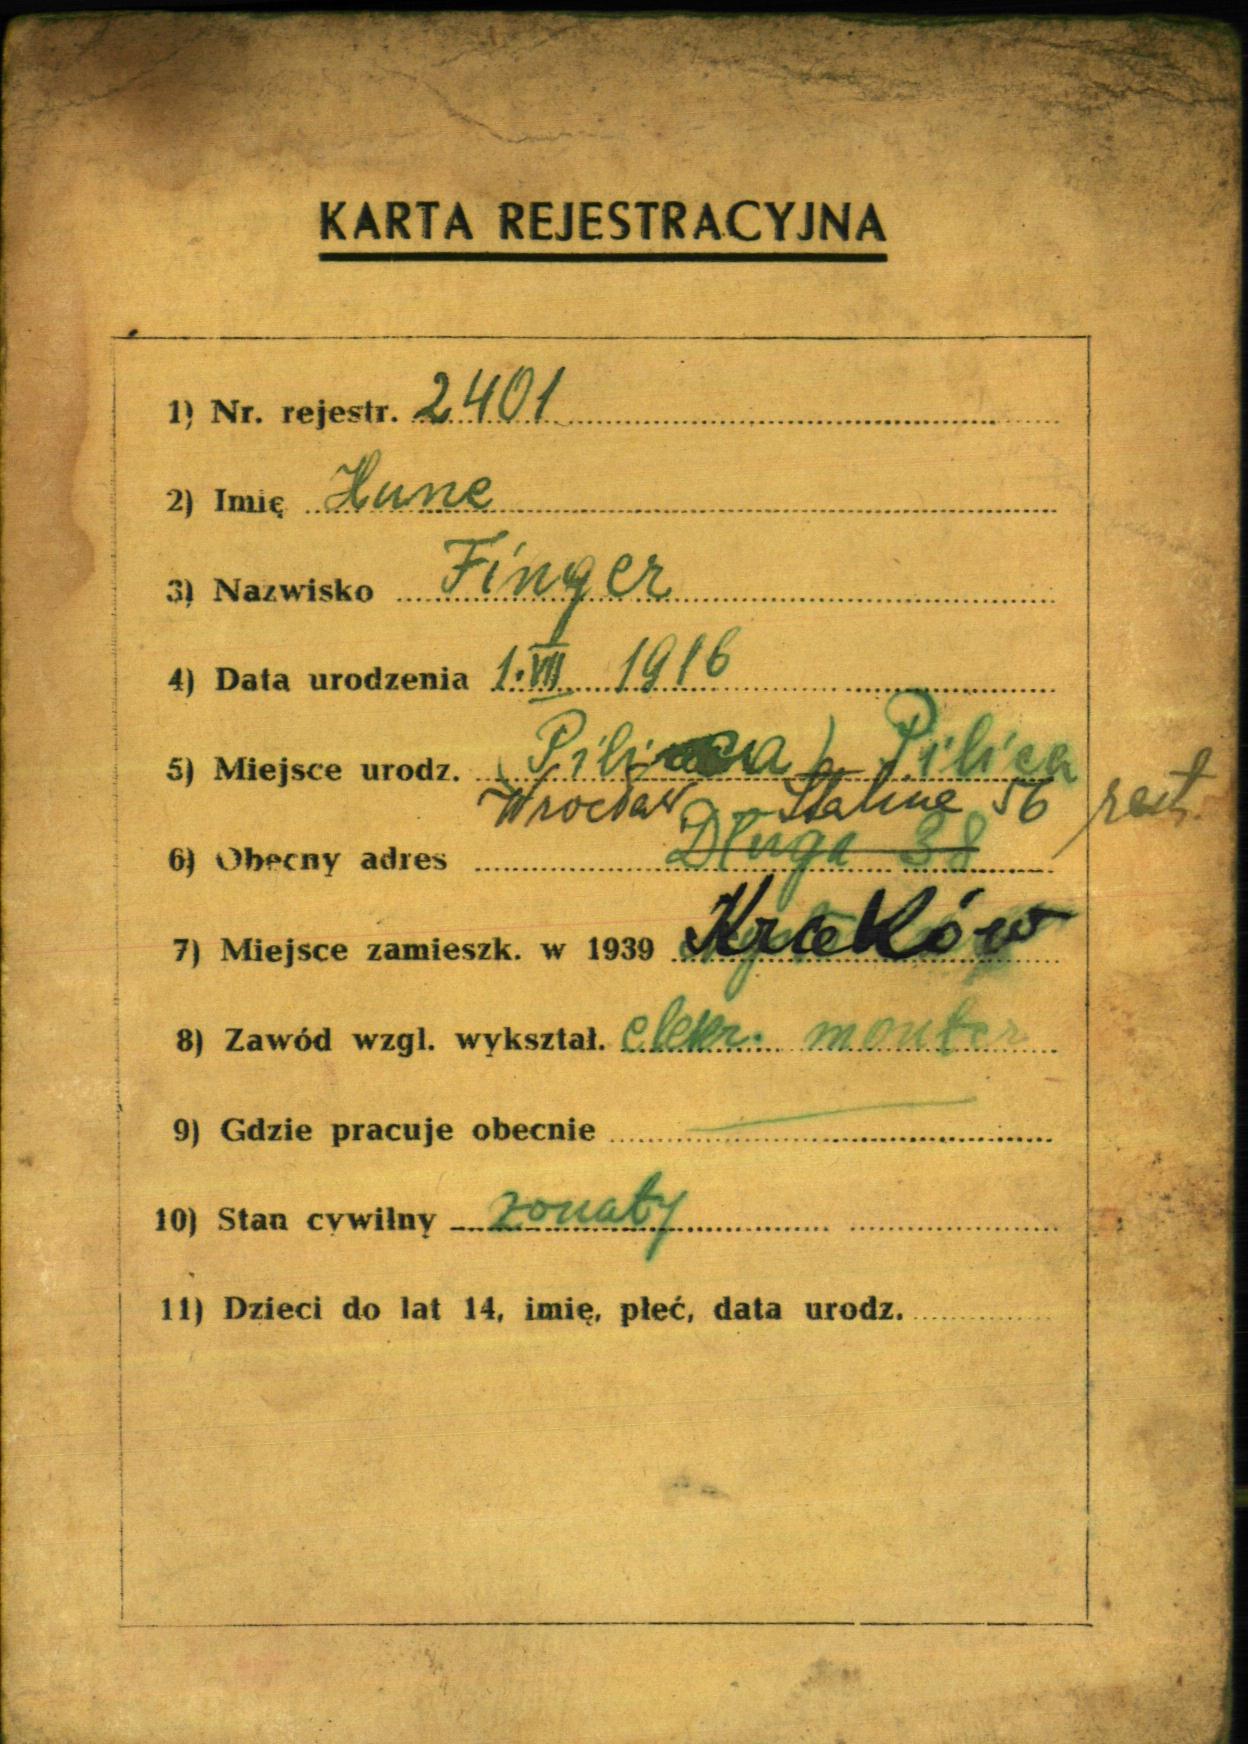 KARTA REJESTRACYJNA
1) Nr. rejestr. 2401
2) Imię Hune
3) Nazwisko Finger
4) Data urodzenia 1.VII 1916
5) Miejsce urodz. Pilica
Wrocław Stalina 56
6) Obecny adres Długa 38
7) Miejsce zamieszk. w 1939 Kraków
8) Zawód wzgl. wykształ. elektr. monter
9) Gdzie pracuje obecnie
10) Stan cywilny zonaty
11) Dzieci do lat 14, imię, płeć, data urodz.